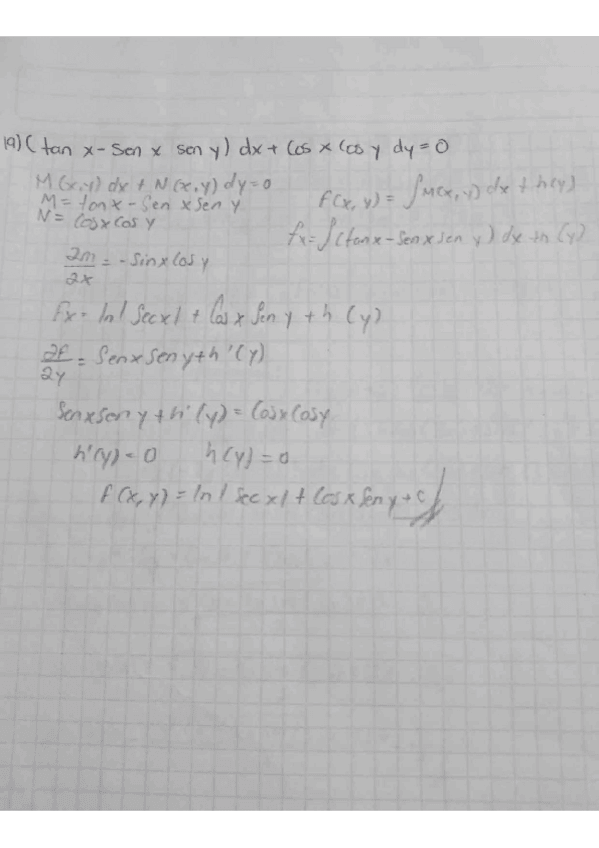 19) (tan x - Sen x sen y) dx + Cos x Cos y dy = 0
M(x,y) dx + N(x,y) dy = 0
M = tan x - Sen x Sen y
N = Cos x Cos y
f(x, y) = ∫M(x,y) dx + h(y)
fx = ∫(tan x - Sen x sen y) dx + h(y)
∂m/∂x = - Sin x Cos y
Fx = ln|Sec x| + Cos x Sen y + h(y)
∂F/∂y = Sen x Sen y + h'(y)
Sen x sen y + h'(y) = Cos x Cos y
h'(y) = 0 h(y) = 0
f(x, y) = ln|Sec x| + Cos x Sen y + C